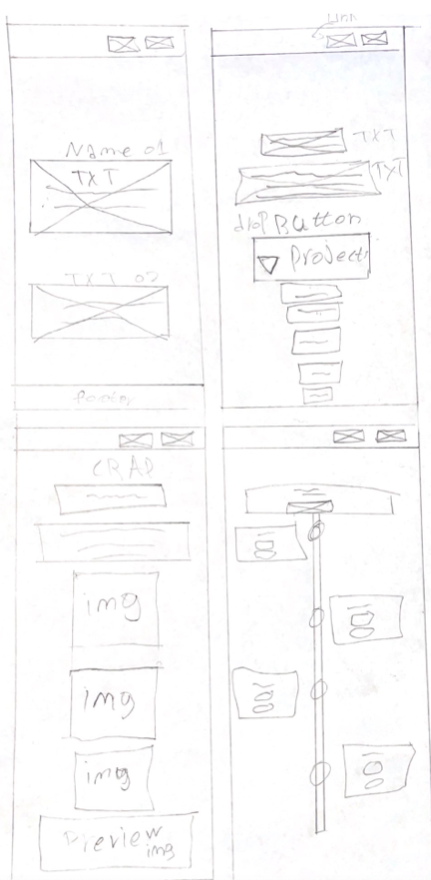 Name 01
TXT
TXT 02
footer
Link
TXT
TXT
drop Button
Project
CRAP
img
img
img
Preview
img